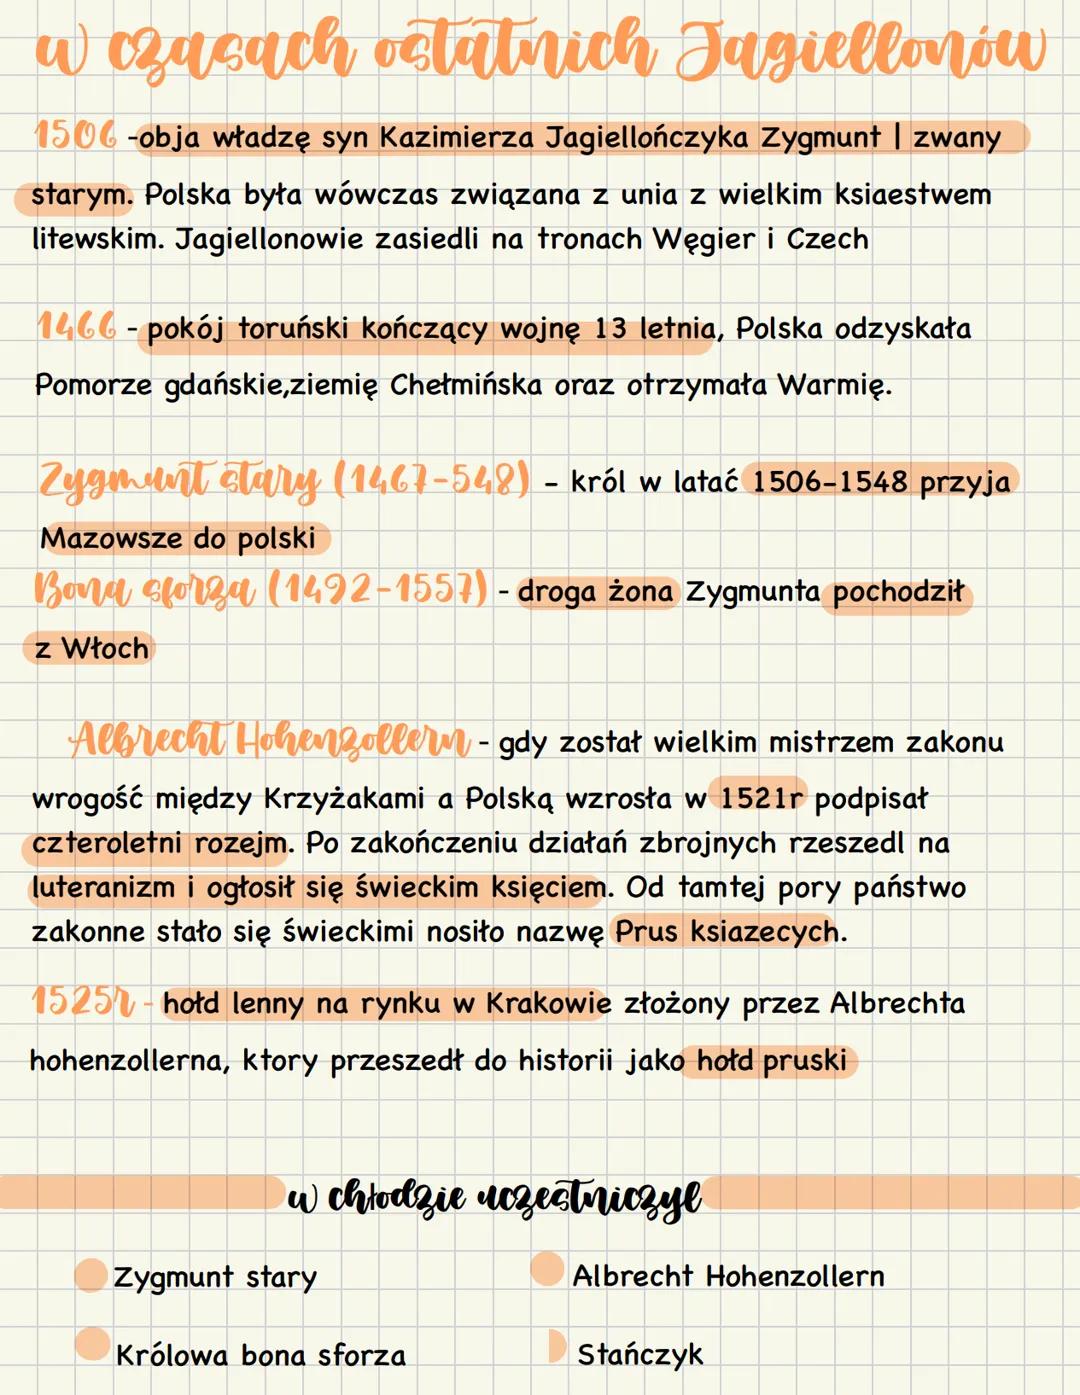 w czasach ostatnich Jagiellonów
1506 -obja władzę syn Kazimierza Jagiellończyka Zygmunt | zwany
starym. Polska była wówczas związana z unia z wielkim ksiaestwem
litewskim. Jagiellonowie zasiedli na tronach Węgier i Czech
1466 - pokój toruński kończący wojnę 13 letnia, Polska odzyskała
Pomorze gdańskie,ziemię Chełmińska oraz otrzymała Warmię.
Zygmunt stary (1467-548) - król w latać 1506-1548 przyja
Mazowsze do polski
Bona sforza (1492-1557) - droga żona Zygmunta pochodził
z Włoch
Albrecht Hohenzollern - gdy został wielkim mistrzem zakonu
wrogość między Krzyżakami a Polską wzrosła w 1521r podpisał
czteroletni rozejm. Po zakończeniu działań zbrojnych rzeszedl na
luteranizm i ogłosił się świeckim księciem. Od tamtej pory państwo
zakonne stało się świeckimi nosiło nazwę Prus ksiazecych.
1525r - hołd lenny na rynku w Krakowie złożony przez Albrechta
hohenzollerna, ktory przeszedł do historii jako hołd pruski
w chłodzie uczestniczył
Zygmunt stary
Albrecht Hohenzollern
Królowa bona sforza
Stańczyk